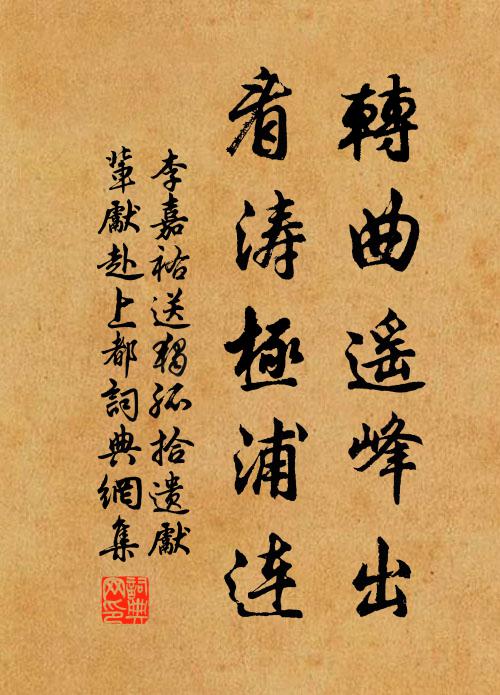 轉曲遥峰出
看涛極浦連
李嘉祐送獨孤拾遺獻
輩獻赴上都詞典網集
詞典
网印